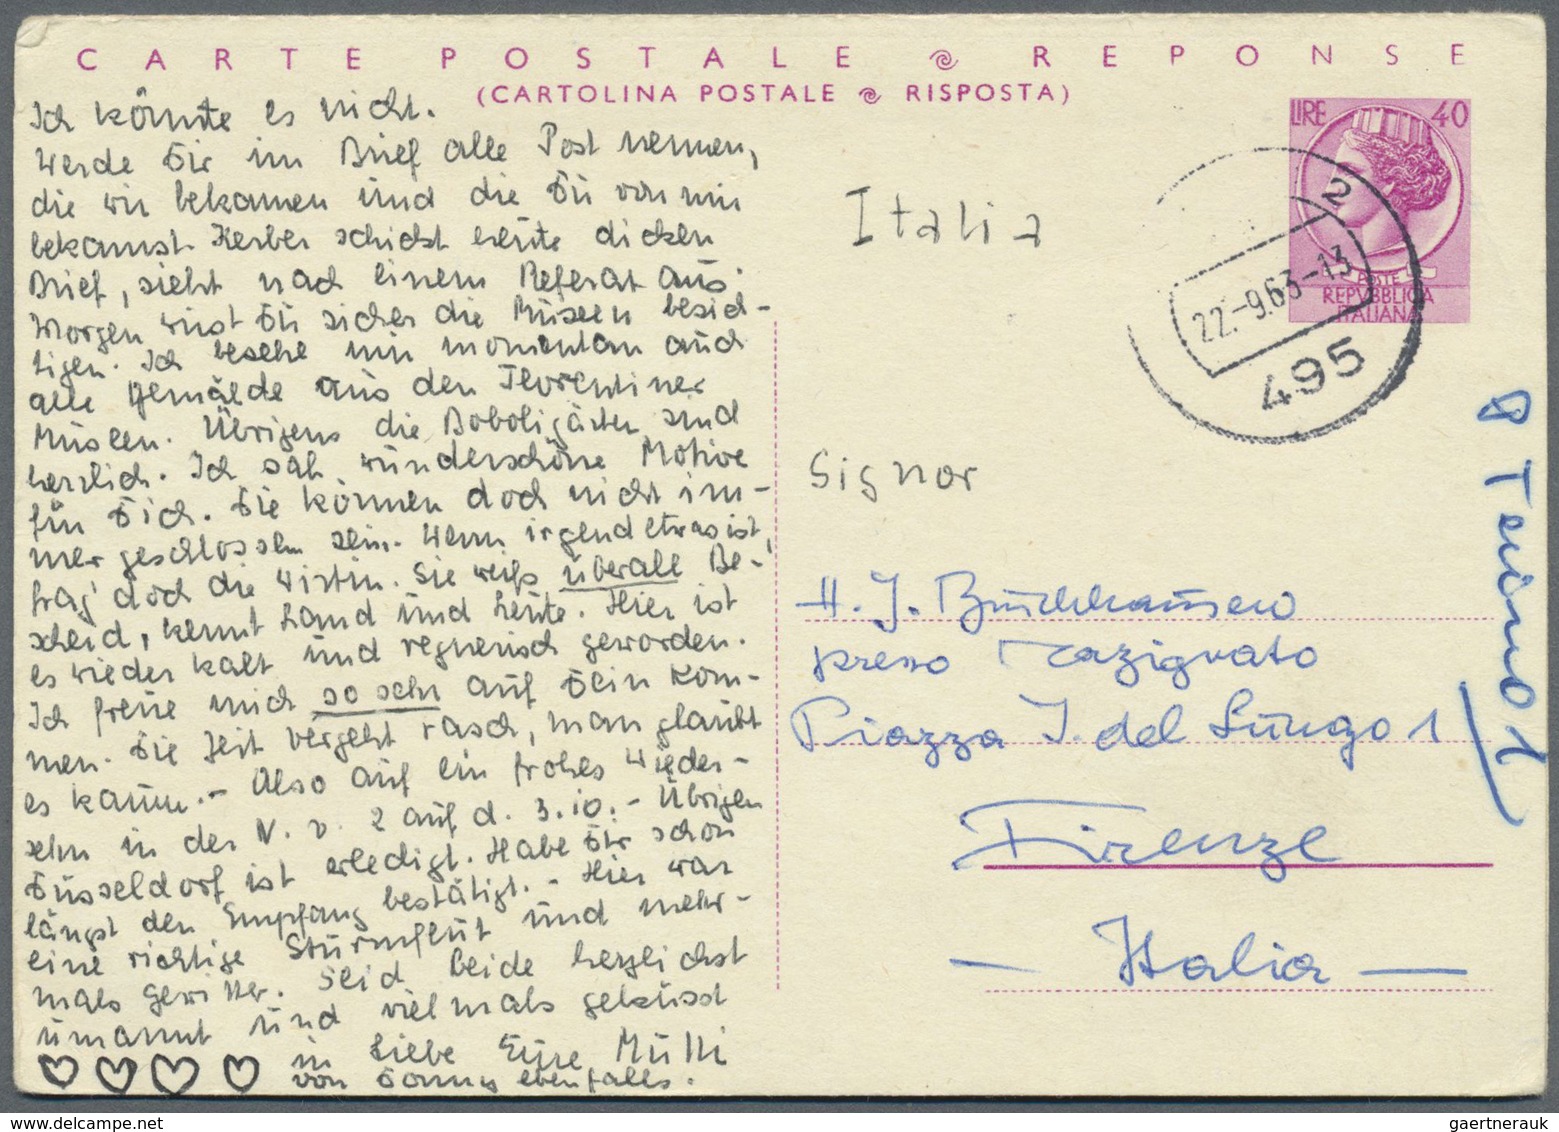 CARTE POSTALE REPONSE
(CARTOLINA POSTALE RISPOSTA)
Ich könnte es nicht.
Werde Dir im Brief alle Post nennen,
die wir bekamen und die Du von mir
bekamst. Kerber schickt heute dicken
Brief, sieht nach einem Referat aus.
Morgen wirst Du sicher die Museen besich-
tigen. Ich besehe mir momentan auch
alle Gemälde aus den Florentiner
Museen. Übrigens die Boboligärten sind
herrlich. Ich sah wunderschöne Motive
für Dich. Die können doch nicht im-
mer geschlossen sein. Wenn irgend etwas ist,
frag' doch die Wirtin. Sie weiß überall Be-
scheid, kennt Land und Leute. Hier ist
es wieder kalt und regnerisch geworden.
Ich freue mich so sehr auf Dein Kom-
men. Die Zeit vergeht rasch, man glaubt
es kaum. - Also auf ein frohes Wieder-
sehn in der N. v. 2 auf d. 3.10. - Übrigen
Düsseldorf ist erledigt. Habe Dir schon
längst den Empfang bestätigt. - Hier war
eine richtige Sturmflut und mehr-
mals Gewitter. Seid beide herzlichst
umarmt und vielmals geküsst
in Liebe Eure Mutti
von ebenfalls.
LIRE 40
POSTE
REPVBBLICA
ITALIANA
2
22.-9.63-13
495
Italia
Signor
H. J. Burkhausen
presso
Piazza J. del Lungo 1
Firenze
- Italia -
gaertnerauk